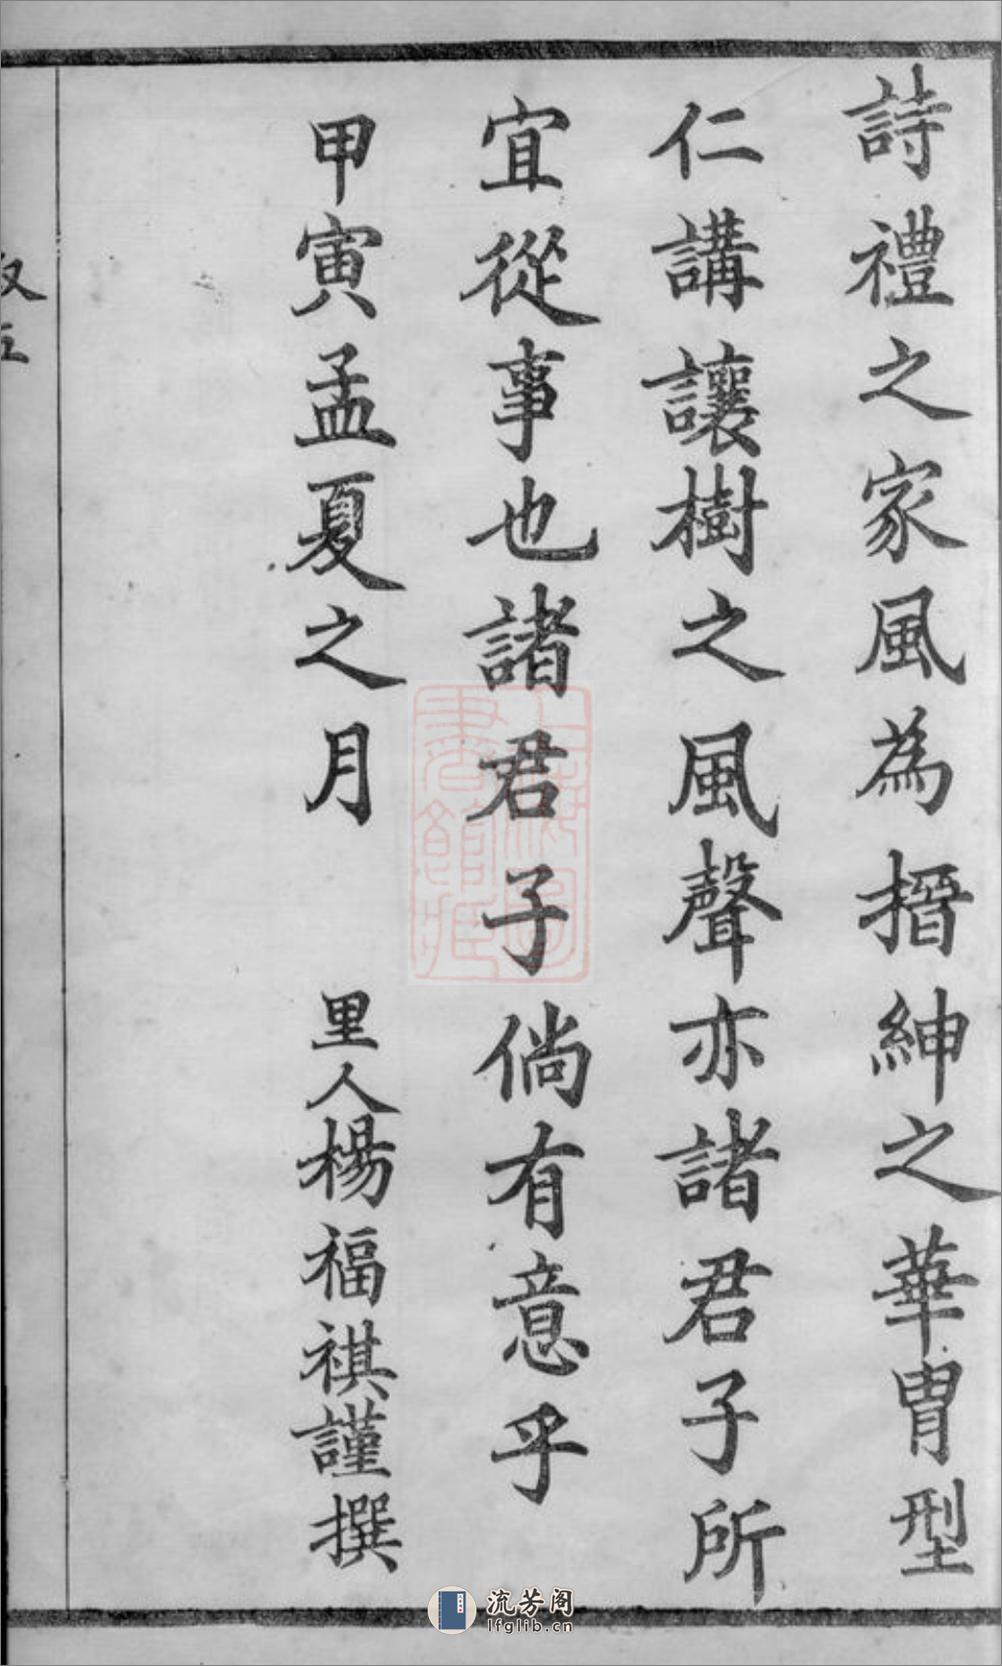 詩禮之家風為搢紳之華冑型
仁講讓樹之風聲亦諸君子所
宜從事也諸君子倘有意乎
甲寅孟夏之月 里人楊福祺謹撰
流芳阁
lfglib.cn